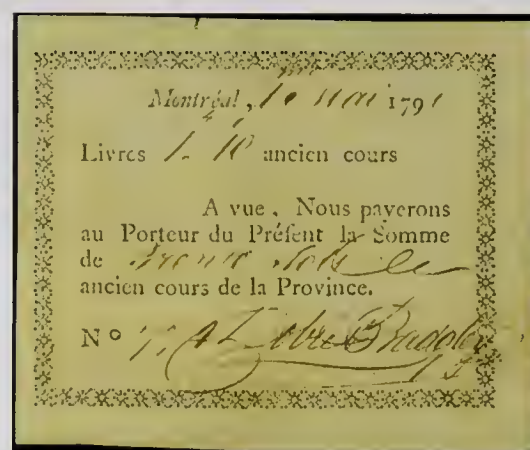 Montréal, 1 mai 1791
Livres 1. 10 ancien cours
A vue, Nous payerons
au Porteur du Préſent la Somme
de trente sols
ancien cours de la Province.
Nº